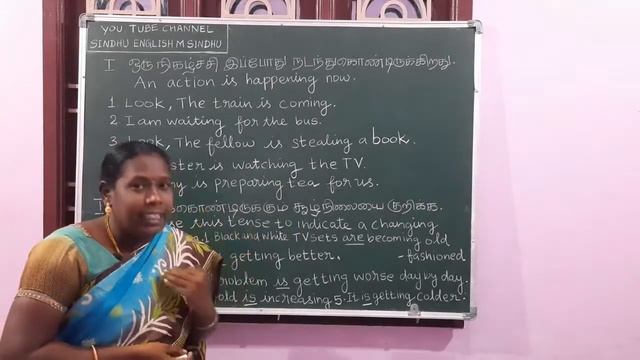 YOU TUBE CHANNEL
SINDHU ENGLISH M SINDHU
I ஒரு நிகழ்ச்சி இப்போது நடந்துகொண்டிருக்கிறது.
An action is happening now.
1 Look, The train is coming.
2 I am waiting for the bus.
3 Look, The fellow is stealing a book.
is watching the TV.
is preparing tea for us.
சூழ்நிலையை குறிக்க
this tense to indicate a changing
1 Black and White TV Sets are becoming old
getting better. - fashioned
is getting worse day by day.
is increasing 5. It is getting colder.